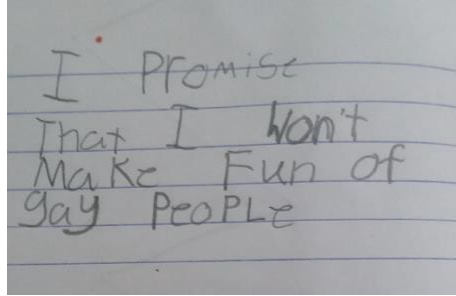 I Promise
That I Won't
Make Fun of
gay PeoPLe